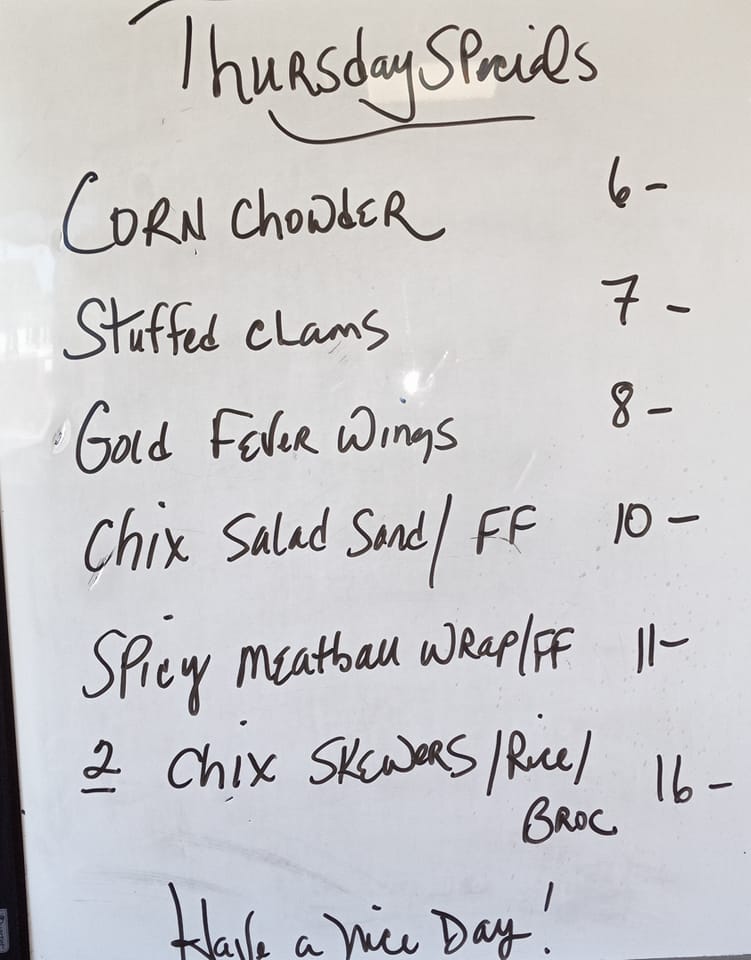 Thursday Specials
Corn Chowder 6-
Stuffed Clams 7-
Gold Fever Wings 8-
Chix Salad Sand/ FF 10-
Spicy Meatball Wrap/FF 11-
2 Chix Skewers/Rice/ 16-
Broc
Have a Nice Day!